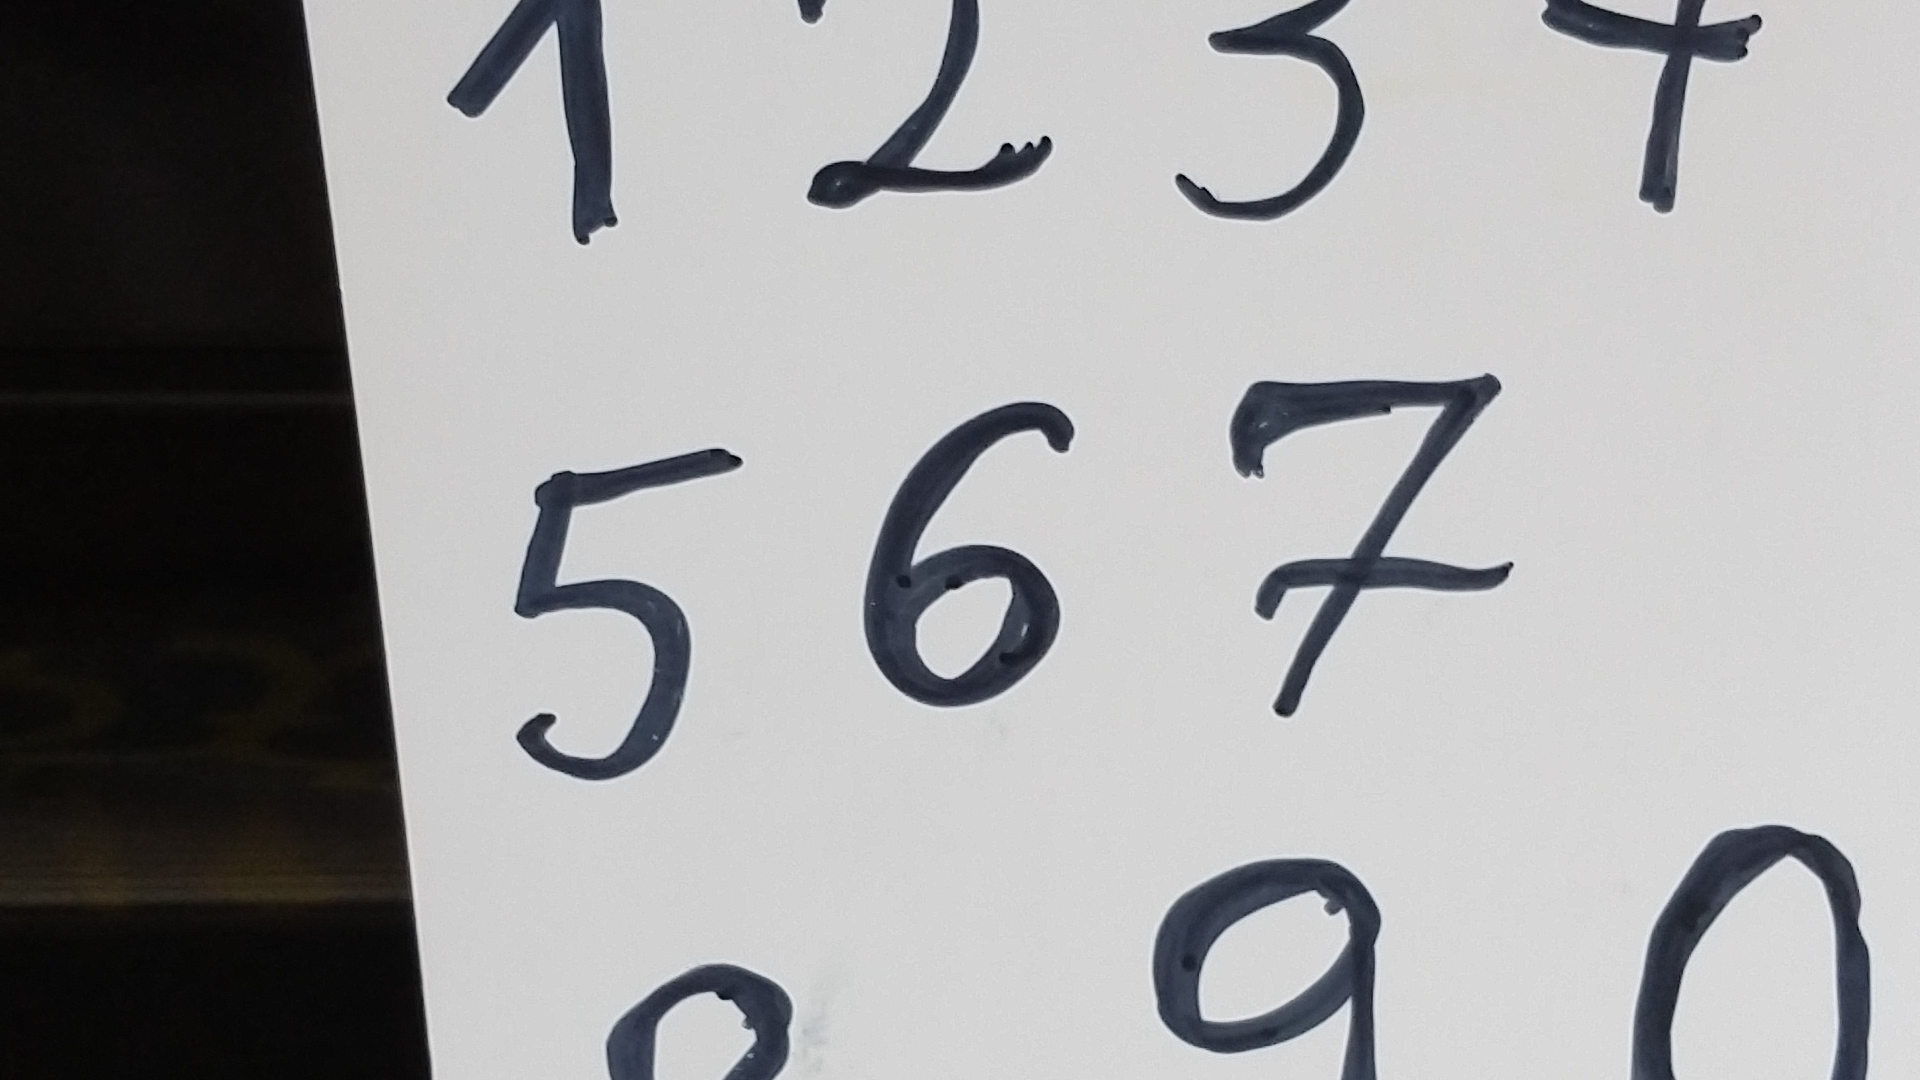 1 2 3 4
5 6 7
8 9 0